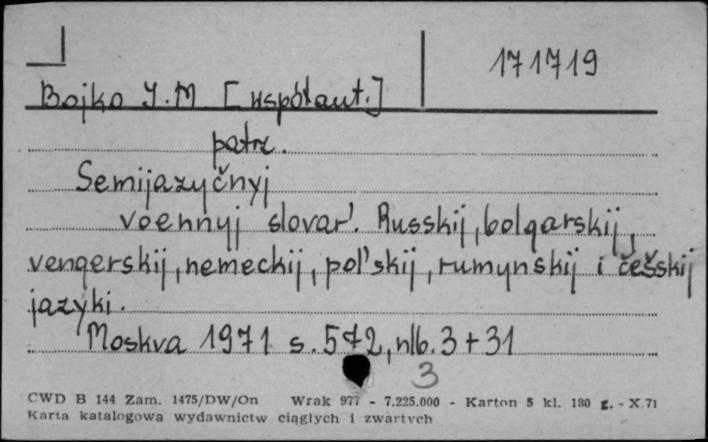 171719
Bojko I. M [współaut.]
patrz.
Semijazyčnyj
voennyj slovar'. Russkij, bolgarskij,
vengerskij, nemeckij, pol'skij, rumynskij i češskij
jazyki.
Moskva 1971 s. 572, nlb. 3 + 31
3
CWD B 144 Zam. 1475/DW/On Wrak 977 - 7.225.000 - Karton 5 kl. 180 g. - X.71
Karta katalogowa wydawnictw ciągłych i zwartych